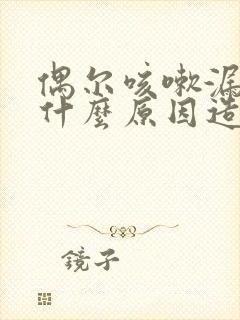 偶尔咳嗽漏
什麼原因造
鏡子